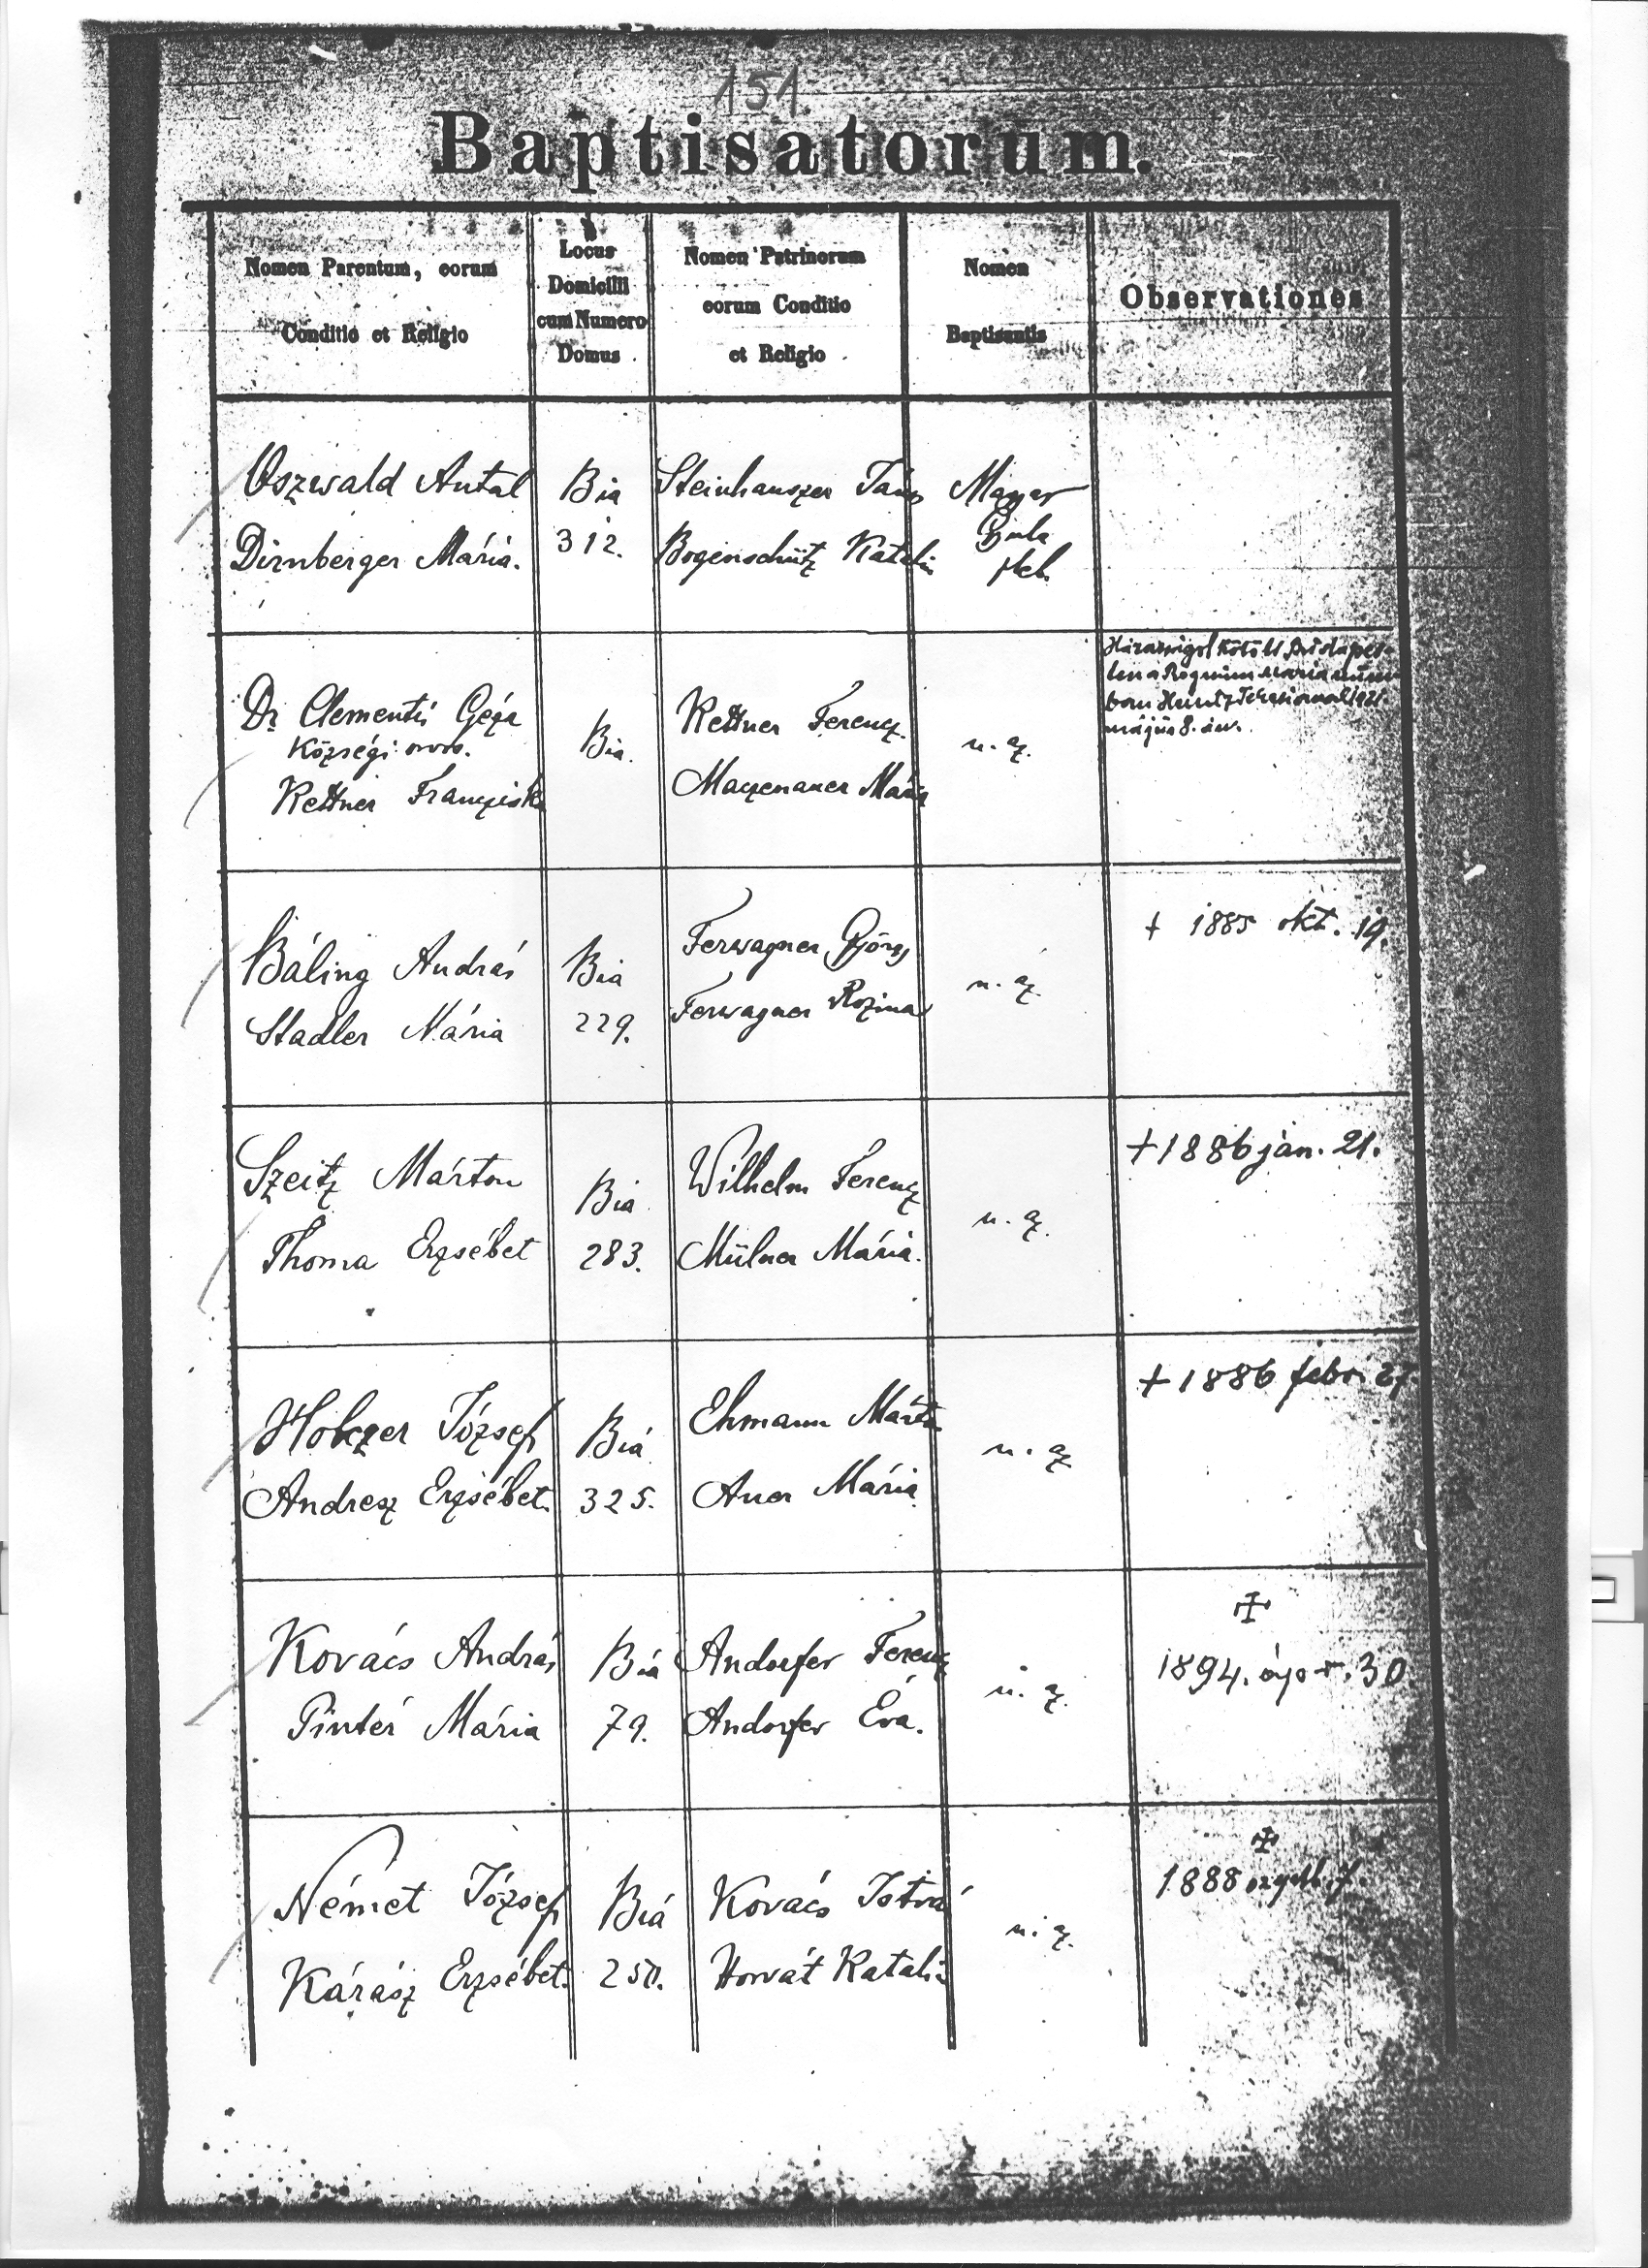 151.
Baptisatorum.
Nomen Parentum, eorum
Conditio et Religio
Locus
Domicilii
cum Numero
Domus
Nomen Patrinorum
eorum Conditio
et Religio
Nomen
Baptisantis
Observationes
Oszwald Antal
Dirnberger Mária.
Bia
312.
Steinhauszer János
Bogenschütz Katalin
Magyar
Gyula
pleb.
Dr Clementis Géza
Községi orvos.
Kettner Francziska
Bia.
Kettner Ferencz.
Maczenauer Mária
u. az.
Házasságot kötött Budapes-
ten a Regnum Marianum-
ban 1921
május 8.-án.
Báling András
Stadler Mária
Bia
229.
Ferwagner György
Ferwagner Rozina
u. az.
+ 1885 okt. 19.
Szeitz Márton
Thoma Erzsébet
Bia
283.
Wilhelm Ferencz
Mülner Mária.
u. az.
+ 1886 jan. 21.
Holczer József
Andresz Erzsébet.
Bia
325.
Ehmann Márton
Auer Mária
u. az
+ 1886 febr. 27.
Kovács András
Pintér Mária
Bia
79.
Andorfer Ferencz
Andorfer Éva.
u. az.
✠
1894. ápr. 30
Német József
Kárász Erzsébet.
Biá
250.
Kovács István
Horvát Katalin
u. az.
✠
1888 7.